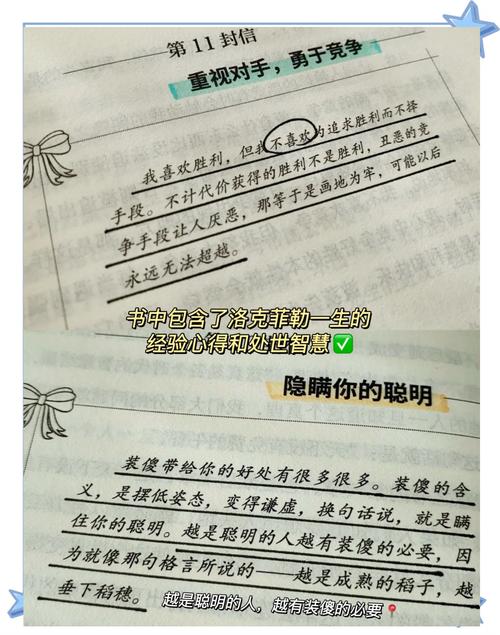 第11封信
重视对手，勇于竞争
我喜欢胜利，但我不喜欢为追求胜利而不择
手段。不计代价获得的胜利不是胜利，丑恶的竞
争手段让人厌恶，那等于是画地为牢，可能以后
永远无法超越。
书中包含了洛克菲勒一生的
经验心得和处世智慧✅
隐瞒你的聪明
装傻带给你的好处有很多很多。装傻的含
义，是摆低姿态，变得谦虚，换句话说，就是瞒
住你的聪明。越是聪明的人越有装傻的必要，因
为就像那句格言所说的——越是成熟的稻子，越
垂下稻穗。
越是聪明的人，越有装傻的必要📍